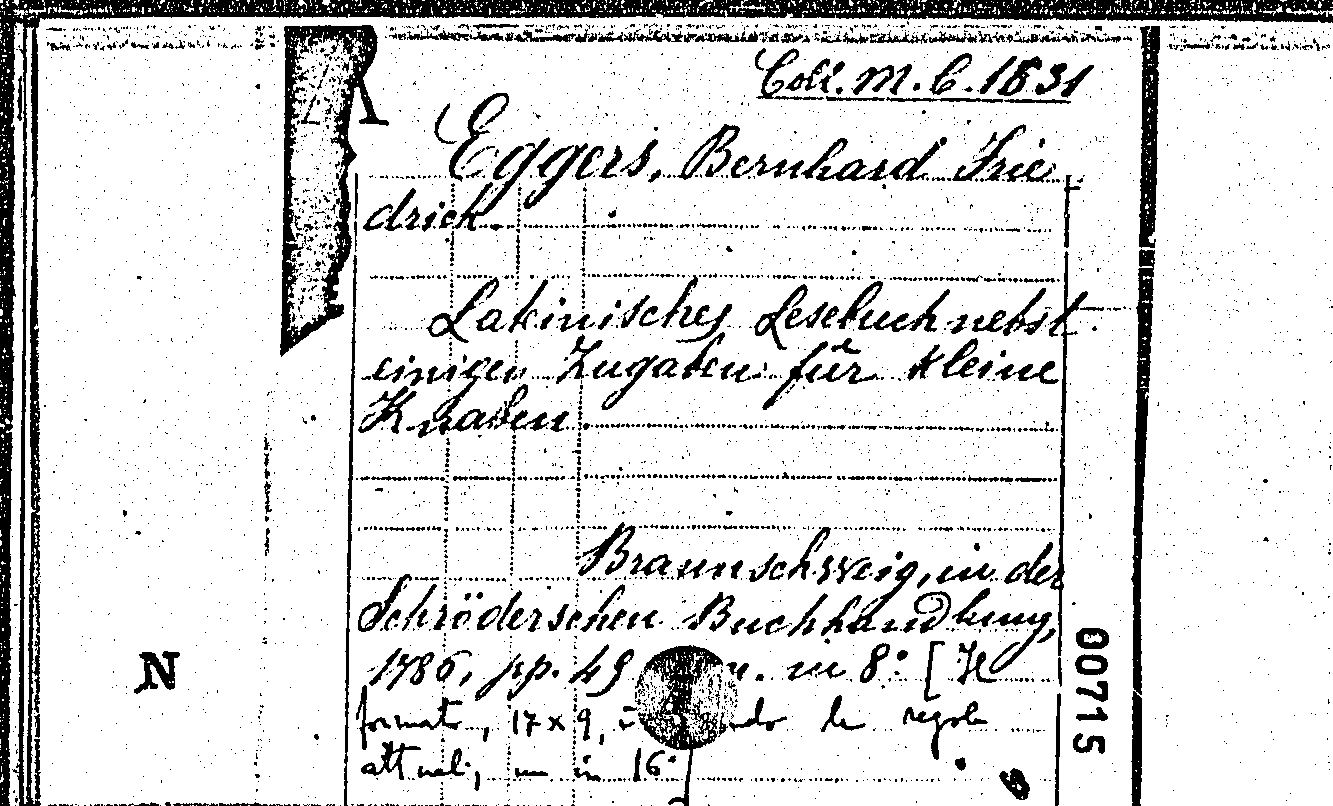 Coll. M. C. 1831
Eggers, Bernhard Frie
drich.
Lateinisches Lesebuch nebst
einigen Zugaben für kleine
Knaben.
Braunschweig, in der
Schröderschen Buchhandlung,
1786, pp. 49 in 8° [Il
formato, 17 x 9, le regole
attuali, un in 16°
N
00715